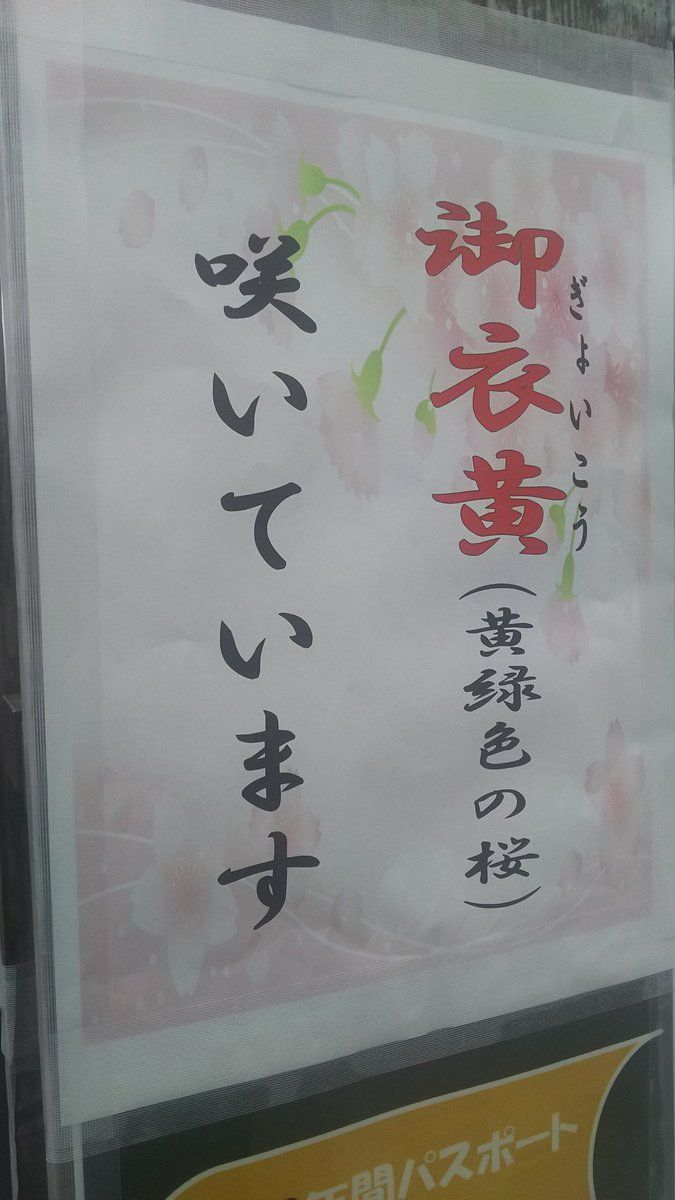 御衣黄(黄緑色の桜)
ぎよいこう
咲いています
年間パスポート